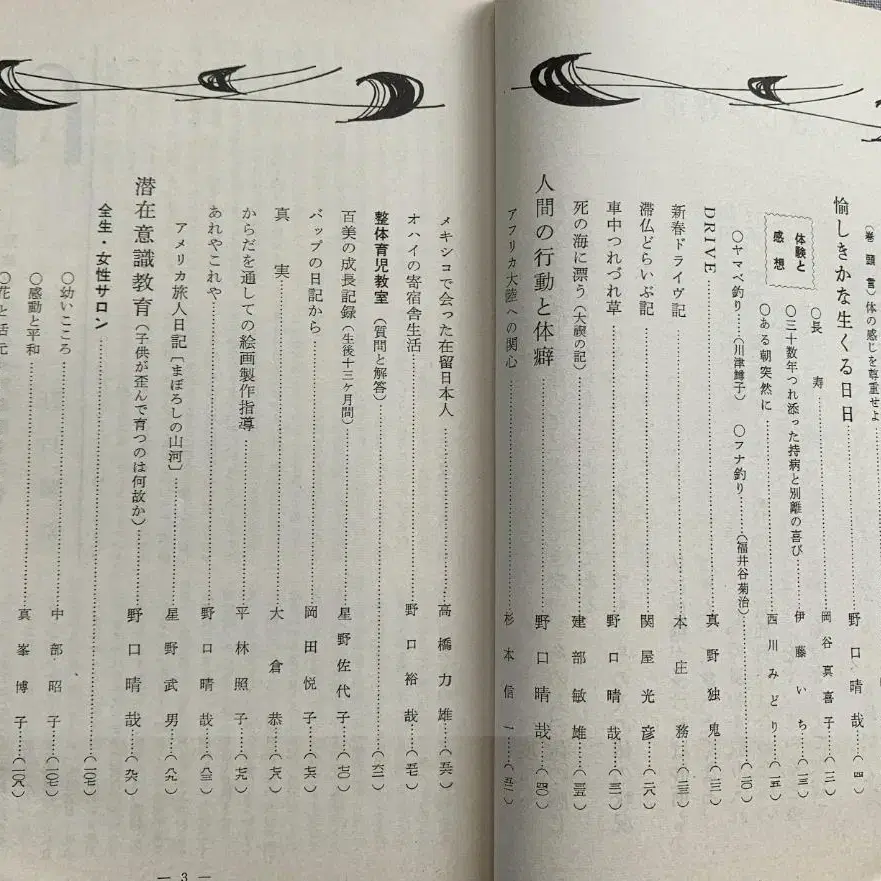 (巻頭言)体の感じを尊重せよ
愉しきかな生くる日日……野口晴哉……(四)
体験と感想
〇長寿……岡谷真喜子……(一二)
〇三十数年つれ添った持病と別離の喜び……伊藤いち……(一三)
〇ある朝突然に……西川みどり……(一五)
〇ヤマベ釣り……(川津鱒子) 〇フナ釣り……(福井谷菊治)……(二〇)
DRIVE……真野独鬼……
新春ドライヴ記……本庄務……
滞仏どらいぶ記……関屋光彦……(二八)
車中つれづれ草……野口晴哉……
死の海に漂う(大禊の記)……建部敏雄……(三五)
人間の行動と体癖……野口晴哉……(四〇)
アフリカ大陸への関心……杉本信一……(五二)
メキシコで会った在留日本人……高橋力雄……(五六)
オハイの寄宿舎生活……野口裕哉……(五七)
整体育児教室(質問と解答)……(六二)
百美の成長記録(生後十三ヶ月間)……星野佐代子……(七〇)
バップの日記から……岡田悦子……(七六)
真実……大倉恭……
からだを通しての絵画製作指導……平林照子……
あれやこれや……野口晴哉……(八三)
アメリカ旅人日記〔まぼろしの山河〕……星野武男……(八九)
潜在意識教育(子供が歪んで育つのは何故か)……野口晴哉……(九六)
全生・女性サロン……(一〇七)
〇幼いこころ……中部昭子……(一〇七)
〇感動と平和……真峯博子……(一〇八)
〇花と活元
— 3 —